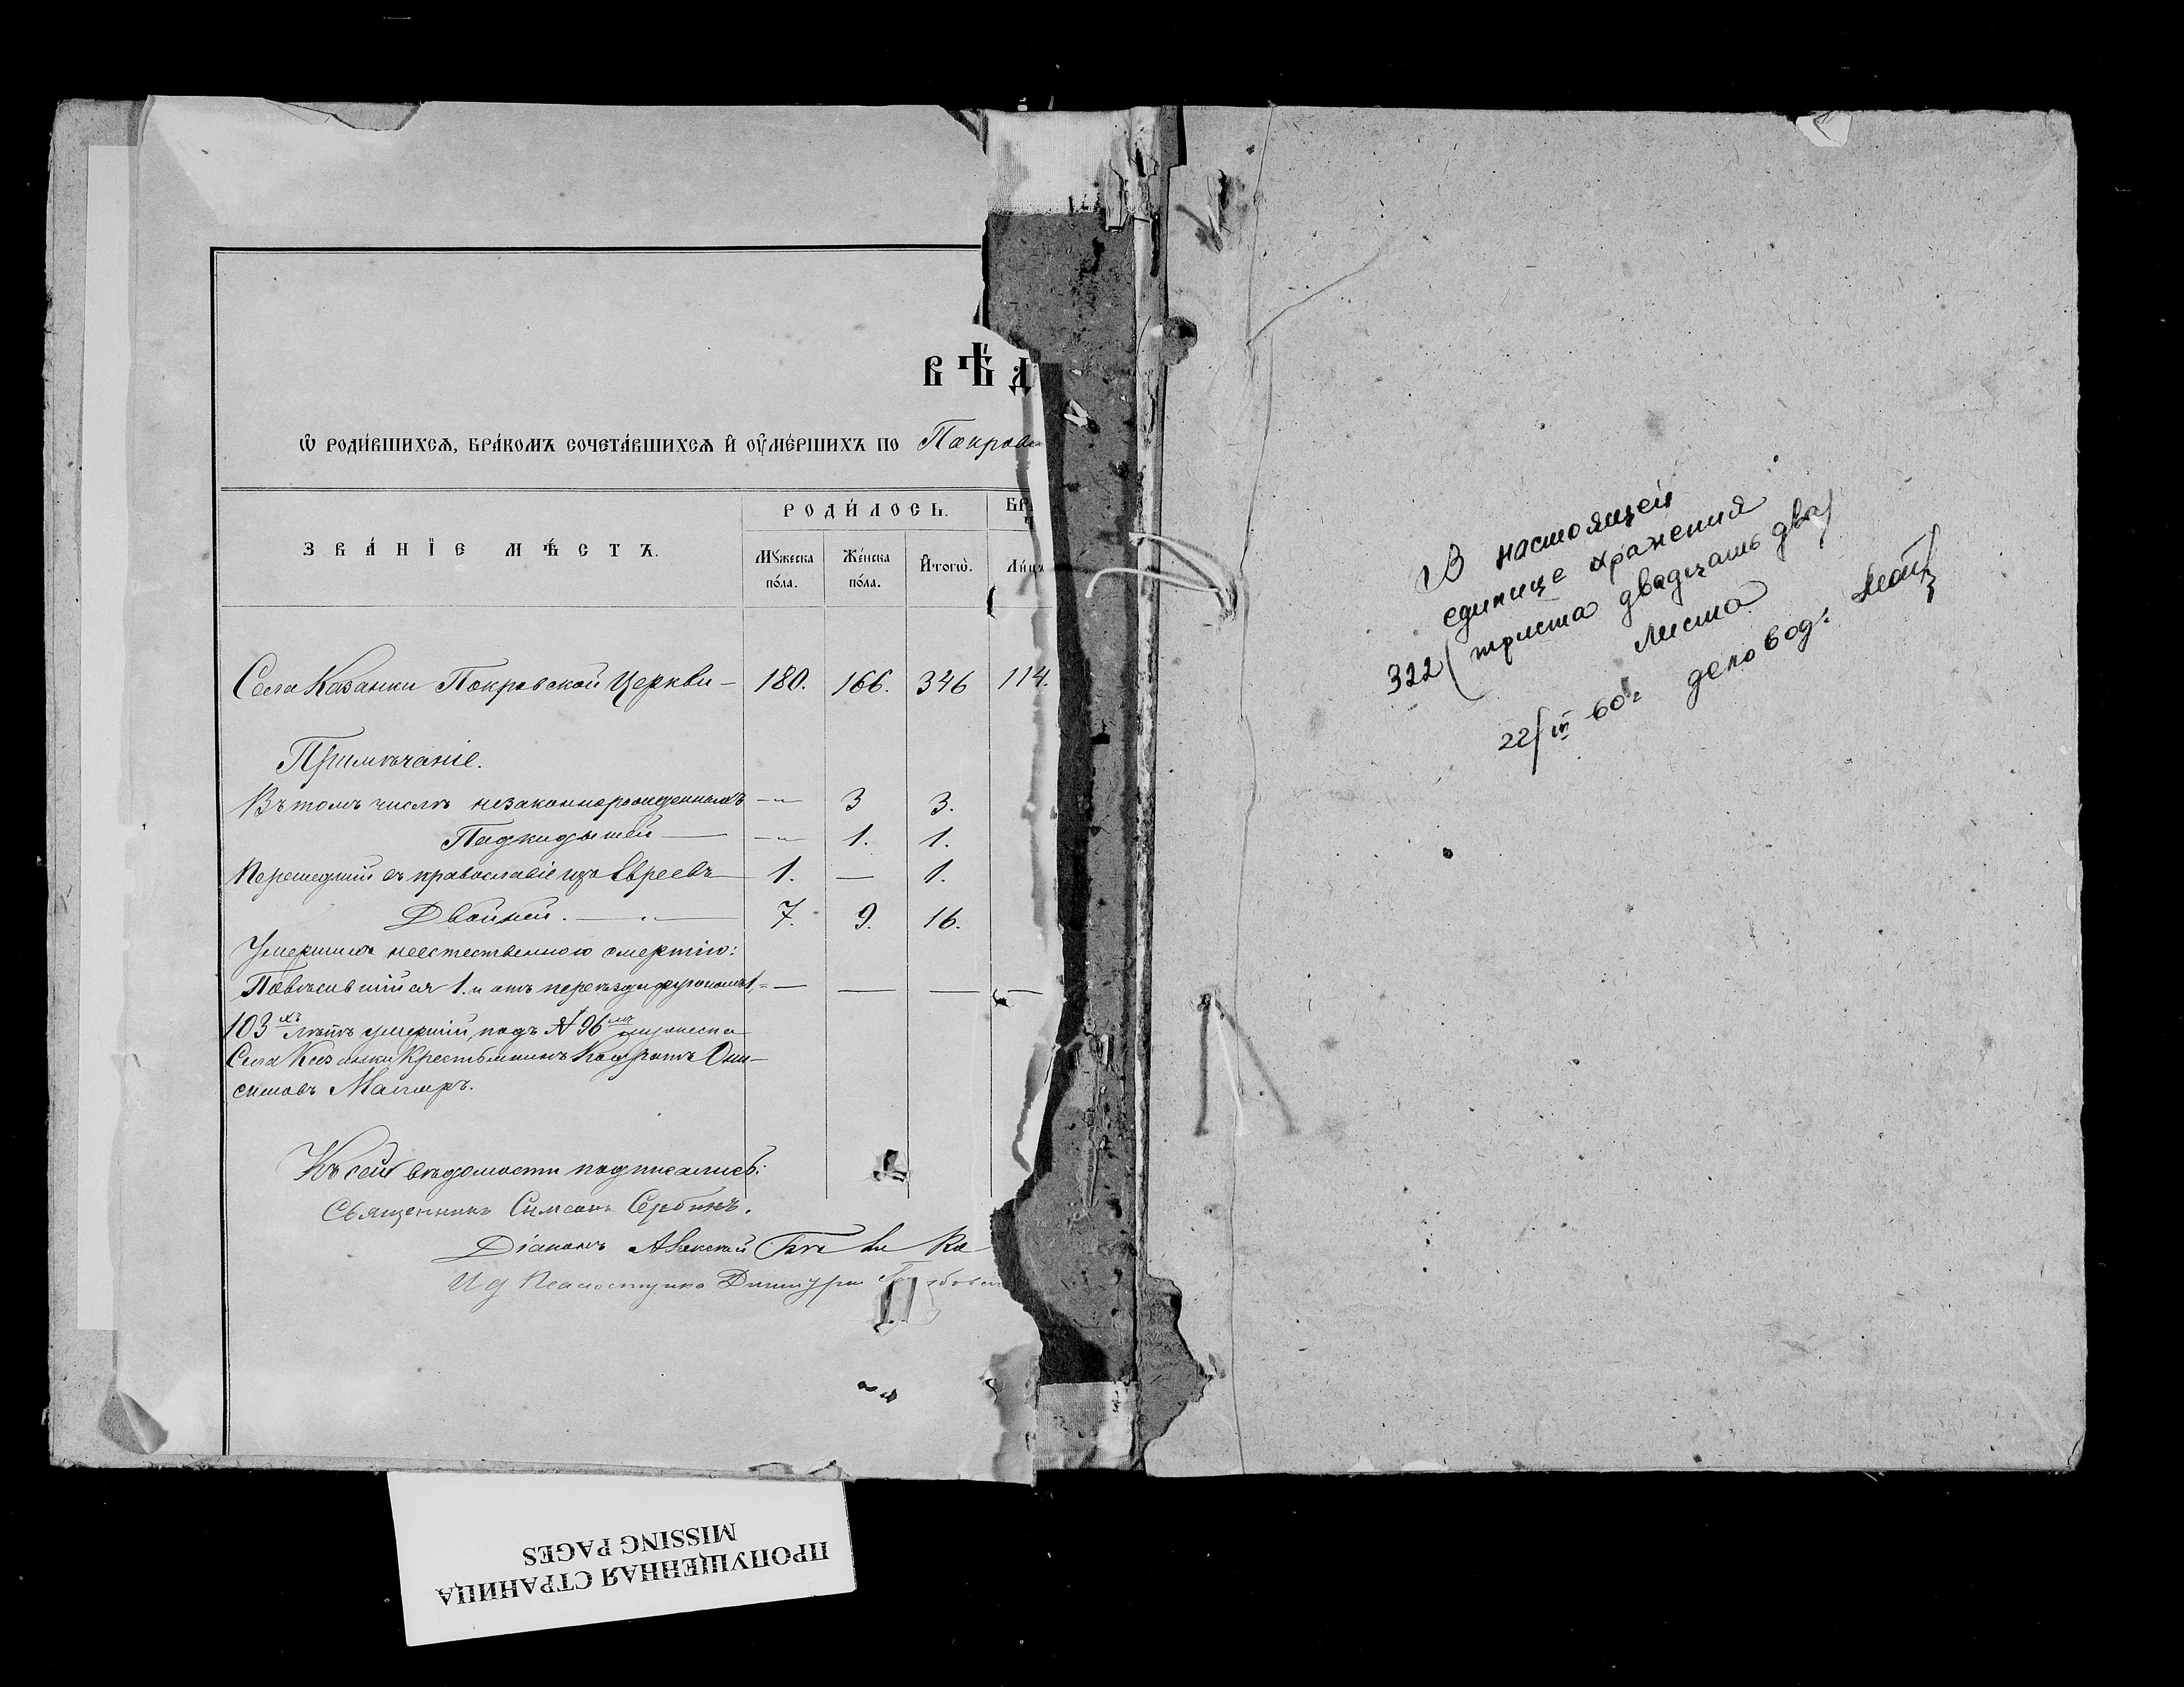 ВѢД
Ѡ РОДИ́ВШИХСѦ, БРА́КОМЪ СОЧЕТА́ВШИХСѦ И҆ ОУ҆МЕ́РШИХЪ ПО Покровс
ЗВА́НЇЕ МѢ́СТЪ.
РОДИ́ЛОСЬ.
БРА
Мꙋ́жеска по́ла.
Же́нска по́ла.
И҆тогѡ̀.
Ли́цъ
Села Казанки Покровской Церкви – 180. 166. 346 114.
Примѣчаніе.
Въ томъ числѣ незаконнорожденныхъ –"– 3 3.
Подкидышей –"– 1. 1.
Перешедшій въ православіе изъ Евреевъ 1. — 1.
Двойней. 7. 9. 16.
Умершихъ неестественною смертію:
Повѣсившійся 1. и отъ переѣзда фургономъ 1. — — — —
103хъ лѣтъ умершій, подъ № 96мъ мужеска
Села Казанки Крестьянинъ Кондратъ Они-
симовъ
Къ сей вѣдомости подписались:
Священникъ Симеонъ Сербинъ.
Діаконъ Алексѣй
И д Псаломщика Димитрій
В настоящей
единице хранения
322 (триста двадцать два)
листа
22/III 60г деловод.
ПРОПУЩЕННАЯ СТРАНИЦА
MISSING PAGES